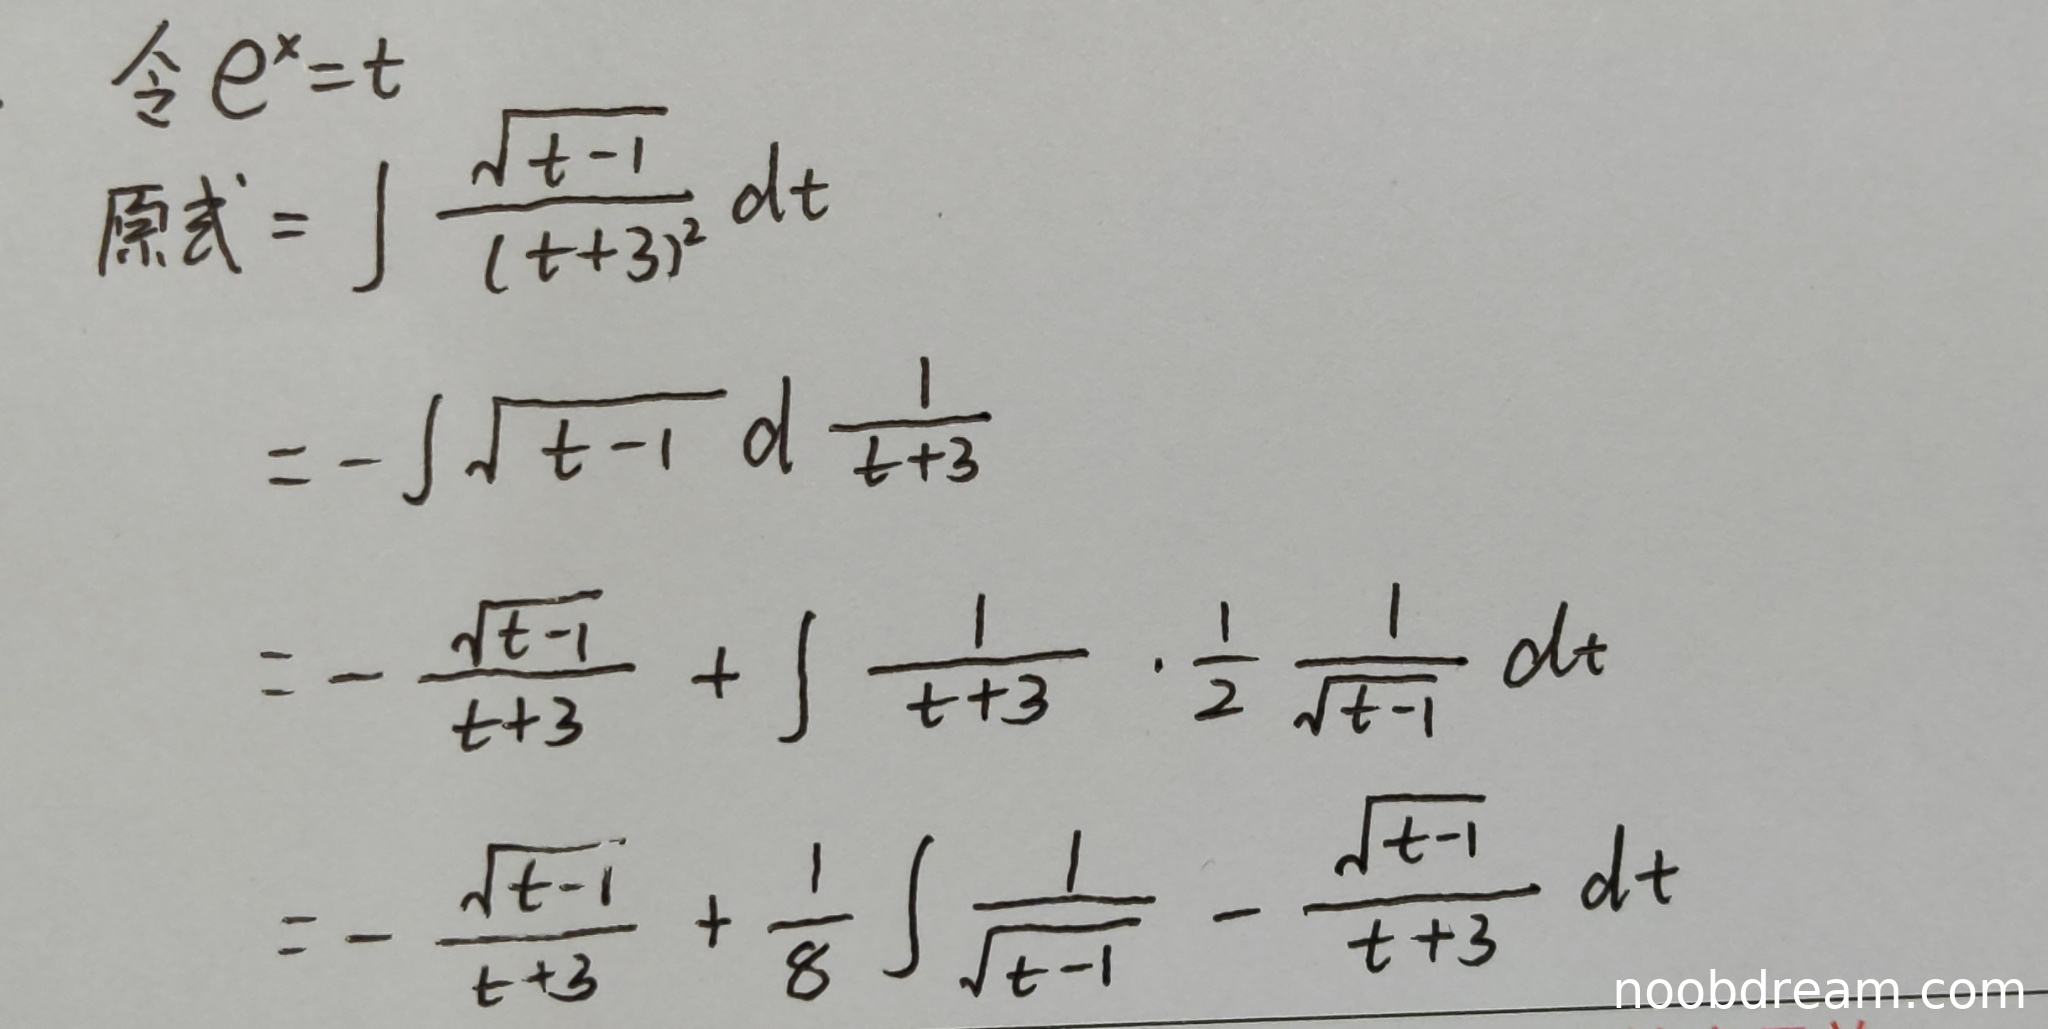 令 e^x = t
原式 = ∫ √(t-1) / (t+3)² dt
= - ∫ √(t-1) d 1/(t+3)
= - √(t-1)/(t+3) + ∫ 1/(t+3) · 1/2 1/√(t-1) dt
= - √(t-1)/(t+3) + 1/8 ∫ 1/√(t-1) - √(t-1)/(t+3) dt
noobdream.com